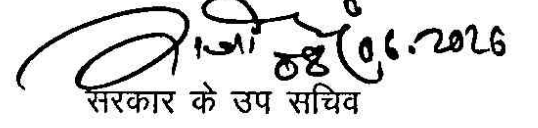 08/06.2026
सरकार के उप सचिव